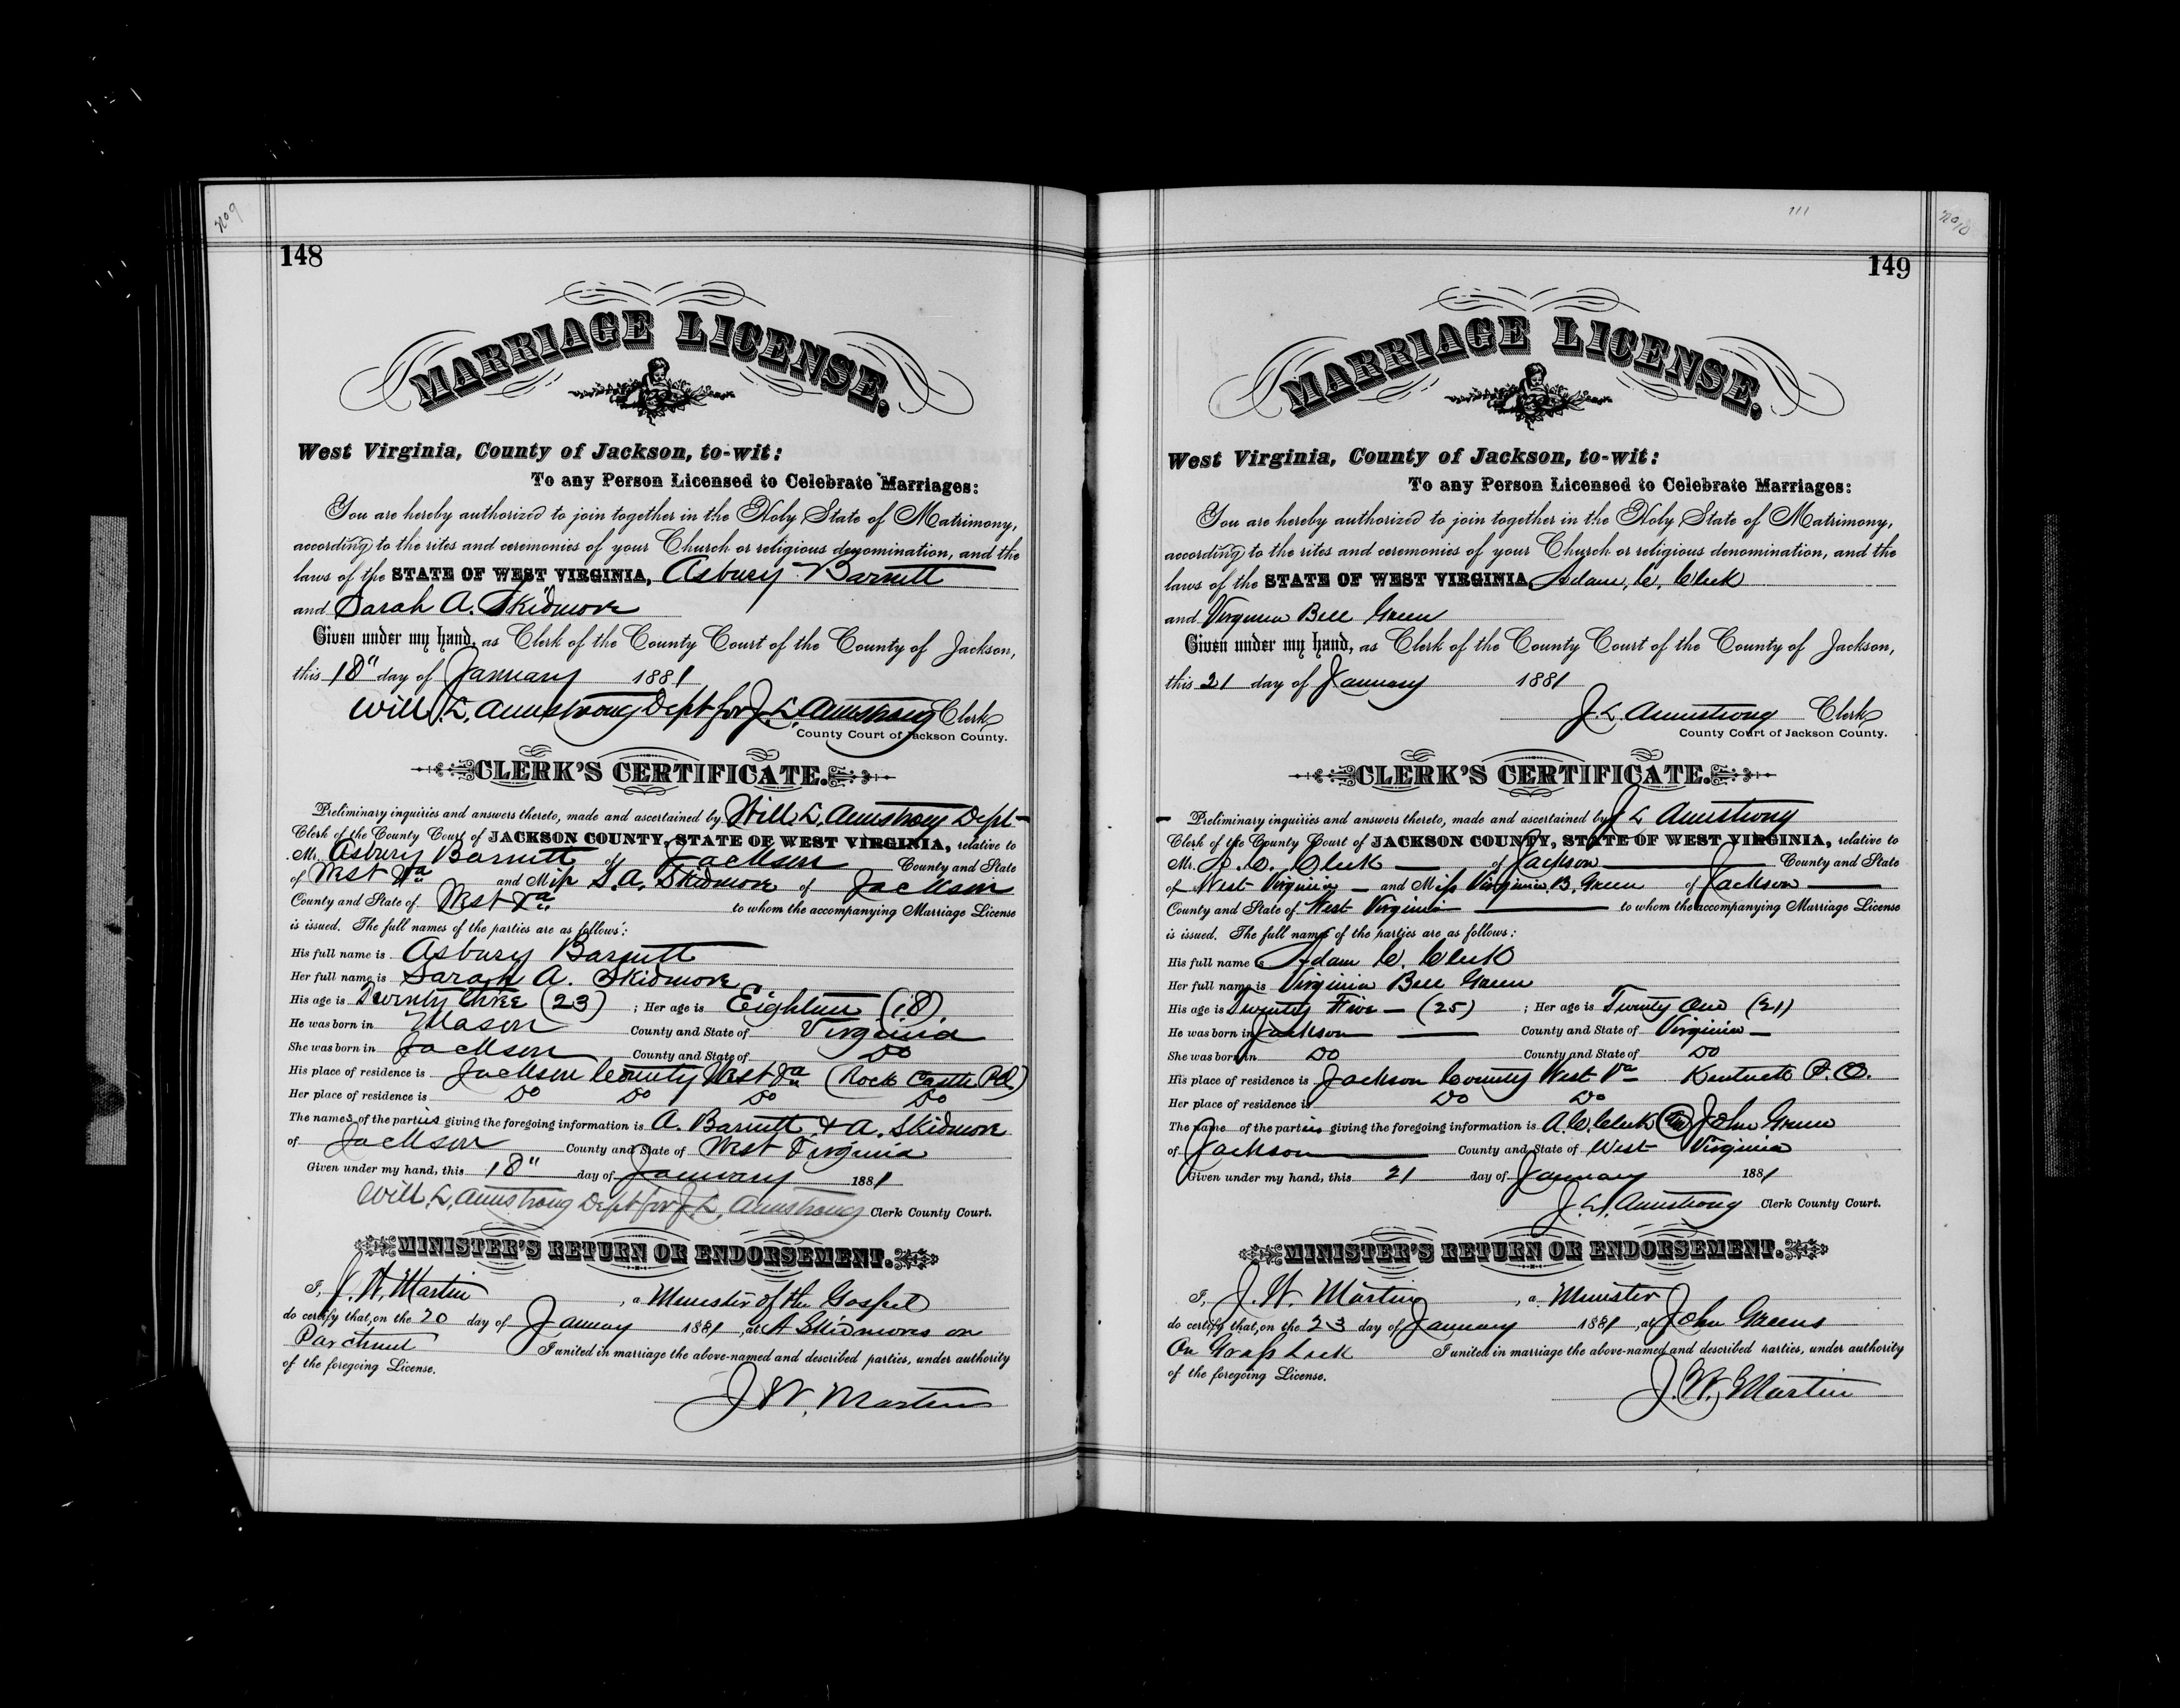 No 9
148
MARRIAGE LICENSE.
West Virginia, County of Jackson, to-wit:
To any Person Licensed to Celebrate Marriages:
You are hereby authorized to join together in the Holy State of Matrimony,
according to the rites and ceremonies of your Church or religious denomination, and the
laws of the STATE OF WEST VIRGINIA, Asbury Barnett
and Sarah A. Skidmore
Given under my hand, as Clerk of the County Court of the County of Jackson,
this 18" day of January 1881
Will L. Armstrong Dept for J. L. Armstrong Clerk
County Court of Jackson County.
CLERK'S CERTIFICATE.
Preliminary inquiries and answers thereto, made and ascertained by Will L. Armstrong Dept-
Clerk of the County Court of JACKSON COUNTY, STATE OF WEST VIRGINIA, relative to
Mr. Asbury Barnett of Jackson County and State
of West Va and Miss S. A. Skidmore of Jackson
County and State of West Va to whom the accompanying Marriage License
is issued. The full names of the parties are as follows:
His full name is Asbury Barnett
Her full name is Sarah A. Skidmore
His age is Twenty three (23) ; Her age is Eighteen (18).
He was born in Mason County and State of Virginia
She was born in Jackson County and State of Do
His place of residence is Jackson County West Va (Rock Castle PO)
Her place of residence is Do Do Do Do
The names of the parties giving the foregoing information is A. Barnett & A. Skidmore
of Jackson County and State of West Virginia
Given under my hand, this 18" day of January 1881
Will. L. Armstrong Dept for J. L. Armstrong Clerk County Court.
MINISTER'S RETURN OR ENDORSEMENT.
I, J. W. Martin , a Minister of the Gospel
do certify that, on the 20 day of January 1881, at A Skidmores on
Parchment I united in marriage the above-named and described parties, under authority
of the foregoing License.
J. W. Martin
111
No 10
149
MARRIAGE LICENSE.
West Virginia, County of Jackson, to-wit:
To any Person Licensed to Celebrate Marriages:
You are hereby authorized to join together in the Holy State of Matrimony,
according to the rites and ceremonies of your Church or religious denomination, and the
laws of the STATE OF WEST VIRGINIA, Adam C. Cleek
and Virginia Bell Green
Given under my hand, as Clerk of the County Court of the County of Jackson,
this 21 day of January 1881
J. L. Armstrong Clerk
County Court of Jackson County.
CLERK'S CERTIFICATE.
Preliminary inquiries and answers thereto, made and ascertained by J L Armstrong
Clerk of the County Court of JACKSON COUNTY, STATE OF WEST VIRGINIA, relative to
Mr. A. C. Cleek of Jackson County and State
of West Virginia and Miss Virginia B. Green of Jackson
County and State of West Virginia to whom the accompanying Marriage License
is issued. The full names of the parties are as follows:
His full name is Adam C. Cleek
Her full name is Virginia Bell Green
His age is Twenty Five (25) ; Her age is Twenty One (21)
He was born in Jackson County and State of Virginia
She was born in Do County and State of Do
His place of residence is Jackson County West Va Kentuck P.O.
Her place of residence is Do Do
The name of the parties giving the foregoing information is A. C. Cleek John Green
of Jackson County and State of West Virginia
Given under my hand, this 21 day of January 1881
J. L. Armstrong Clerk County Court.
MINISTER'S RETURN OR ENDORSEMENT.
I, J. W. Martin , a Minister
do certify that, on the 23 day of January 1881, at John Greens
On Grass Lick I united in marriage the above-named and described parties, under authority
of the foregoing License.
J. W. Martin